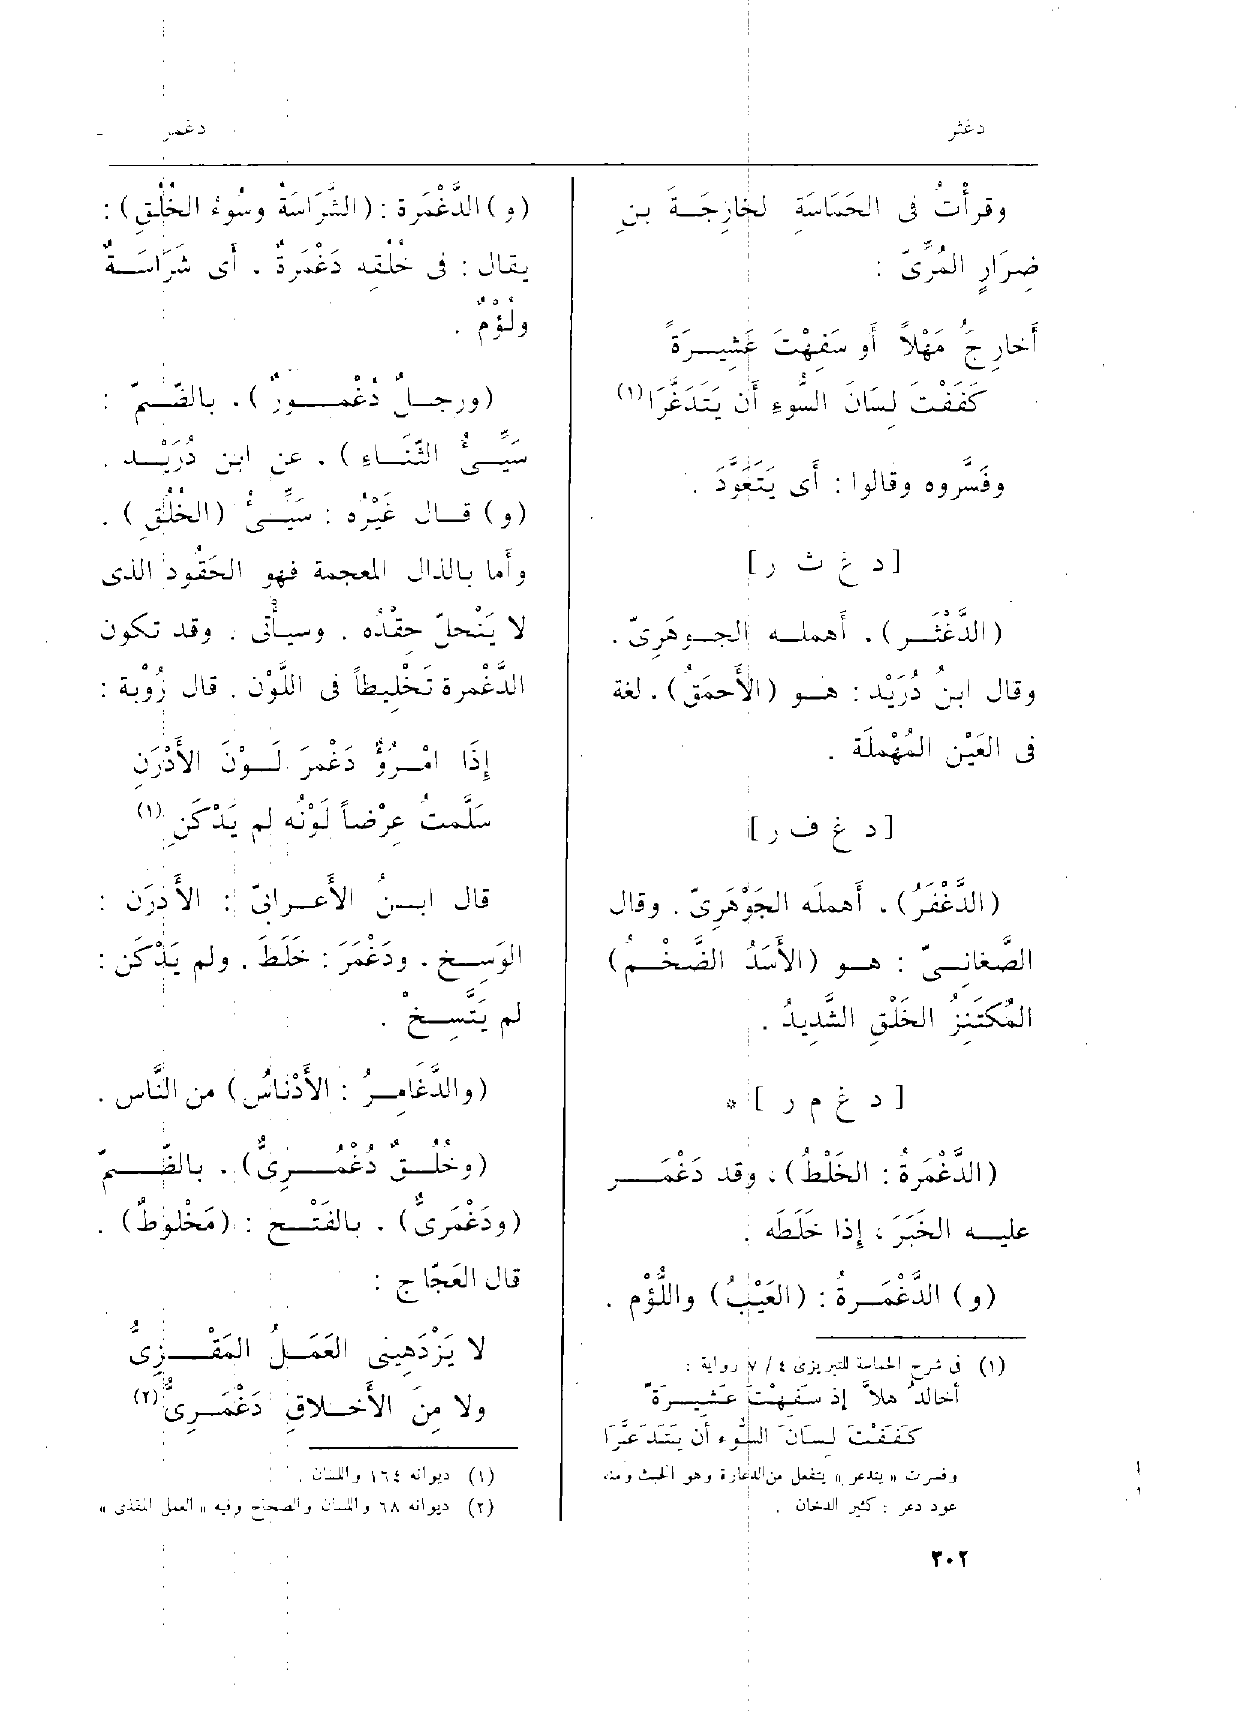 دغثر
دغمر
وقرأتُ فى الحَمَاسَةِ لخارِجَةَ بنِ
ضِرَارٍ المُرِّىّ :
أَخارِجَ مَهْلاً أَو سَفِهْتَ عَشِيرَةً
كَفَفْتَ لِسَانَ السُّوءِ أَن يَتَدَغَّرَا (١)
وفَسَّروه وقالوا : أَى يَتَعَوَّدَ .
[ د غ ث ر ]
(الدَّغْثَر) ، أَهمله الجوهَرِىّ .
وقال ابنُ دُرَيْد : هو (الأَحمَقُ) ، لغة
فى العَيْنِ المُهْمَلَة .
[ د غ ف ر ]
(الدَّغْفَرُ) ، أَهمله الجَوْهَرِىّ ، وقال
الصّغانِىّ : هو (الأَسَدُ الضَّخْمُ)
المُكْتَنِزُ الخَلْقِ الشَّدِيدُ .
[ د غ م ر ] *
(الدَّغْمَرَةُ : الخَلْطُ) ، وقد دَغْمَر
عليه الخَبَرَ ، إِذا خَلَطَه .
(و) الدَّغْمَرةُ : (العَيْبُ) واللُّؤْم .
(١) فى شرح الحماسة للتبريزى ٤ / ٧ رواية :
أخالدُ هلاَّ إذ سَفِهْتَ عَشِيرَةً
كَفَفْتَ لِسَانَ السُّوءِ أن يَتَدَعَّرَا
وفسرت « يتدعر » يتفعل من الدعارة وهو الخبث ومنه
عود دعر : كثير الدخان .
(و) الدَّغْمَرة : (الشَّرَاسَةُ وسُوءُ الخُلُقِ) :
يقال : فى خُلُقِه دَغْمَرَةٌ ، أَى شَرَاسَةٌ
ولُؤْمٌ .
(ورجلٌ دُغْمُورٌ) ، بالضّمّ :
سَيِّىءُ الثَّنَاءِ) ، عن ابن دُرَيْد .
(و) قال غَيْرُه : سَيِّىءُ (الخُلُقِ) .
وأَما بالذال المعجمة فهو الحَقُود الذى
لا يَنْحلّ حِقْدُه ، وسيأْتى . وقد تكون
الدَّغْمرة تَخْلِيطاً فى اللَّوْن . قال رُوبة :
إِذَا امْرُؤٌ دَغْمَرَ لَوْنَ الأَدْرَنِ
سَلَّمتُ عِرْضاً لَوْنُه لم يَدْكَنِ (١)
قال ابنُ الأَعرابىّ : الأَدْرَن :
الوَسِخ ، ودَغْمَرَ : خَلَطَ ، ولم يَدْكَن :
لم يَتَّسِخْ .
(والدَّغَامِرُ : الأَدْنَاسُ) من النَّاس .
(وخُلُقٌ دُغْمُرِىٌّ) ، بالضّمّ
(ودَغْمَرِىٌّ) ، بالفَتْح : (مَخْلوطٌ) .
قال العَجّاج :
لا يَزْدَهِينى العَمَلُ المَقْزِىُّ
ولا مِنَ الأَخلاقِ دَغْمَرِىُّ (٢)
(١) ديوانه ١٦٤ واللسان .
(٢) ديوانه ٦٨ واللسان والصحاح وفيه « العمل المقذى »
٣٠٢